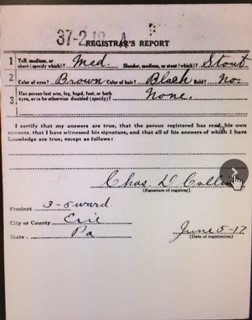 37-2-12 A
REGISTRAR'S REPORT
1 Tall, medium, or short (specify which)? Med. Slender, medium, or stout (which)? Stout
2 Color of eyes? Brown Color of hair? Black Bald? No.
3 Has person lost arm, leg, hand, foot, or both
eyes, or is he otherwise disabled (specify)? None.
I certify that my answers are true, that the person registered has read his own
answers, that I have witnessed his signature, and that all of his answers of which I have
knowledge are true, except as follows:
Chas. D
(Signature of registrar)
Precinct 3-5 ward
City or County Erie
State Pa June 5-17
(Date of registration)